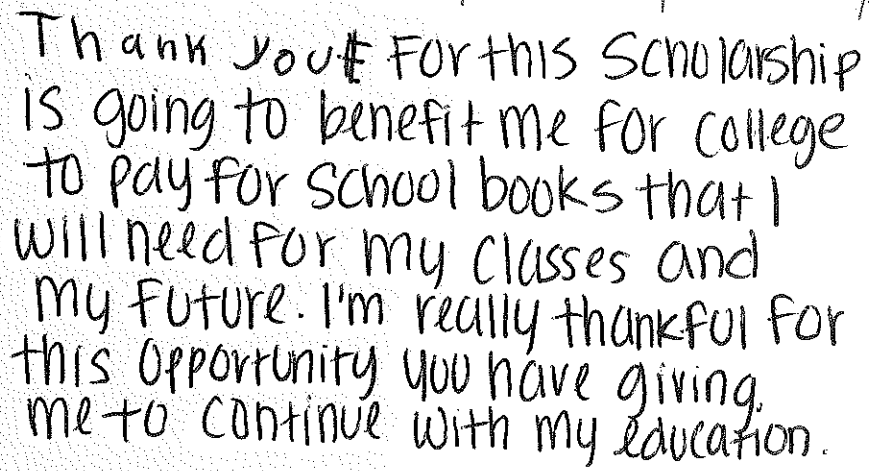 Thank you for this scholarship
is going to benefit me for college
to pay for school books that I
will need for my classes and
my future. I'm really thankful for
this opportunity you have giving
me to continue with my education.